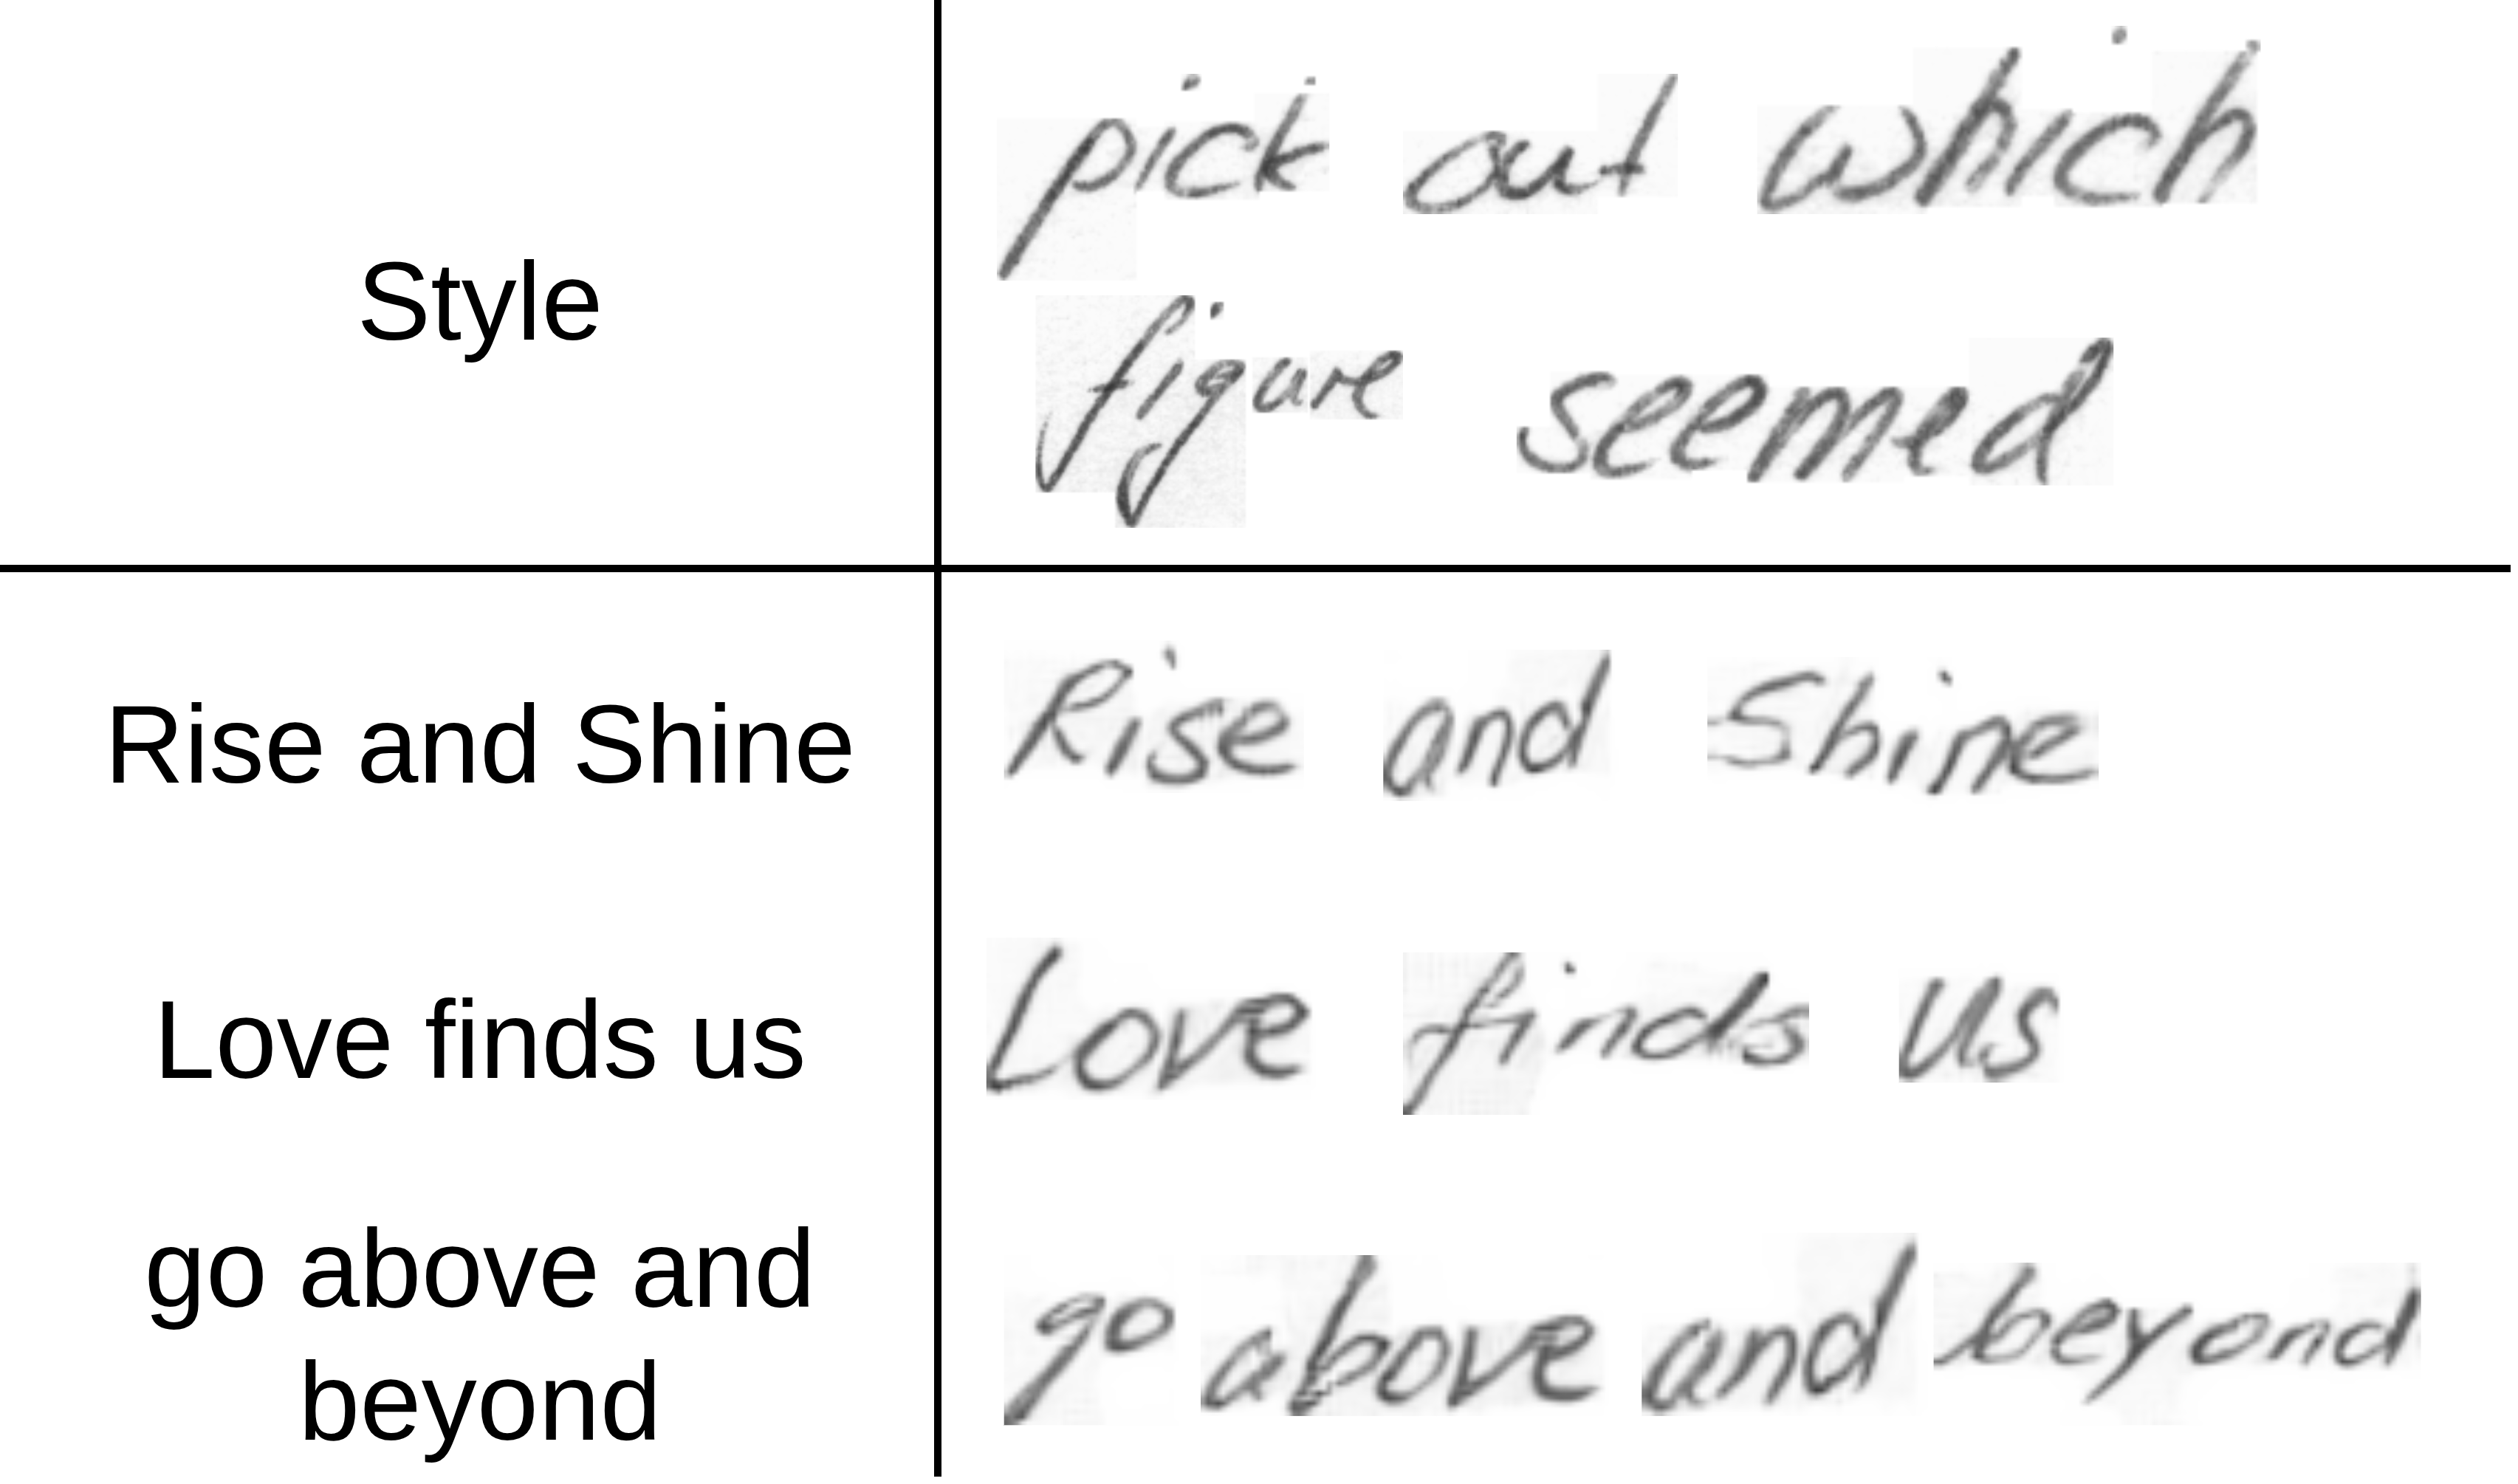 Style
pick out which
figure seemed
Rise and Shine
Rise and Shine
Love finds us
Love finds us
go above and
beyond
go above and beyond